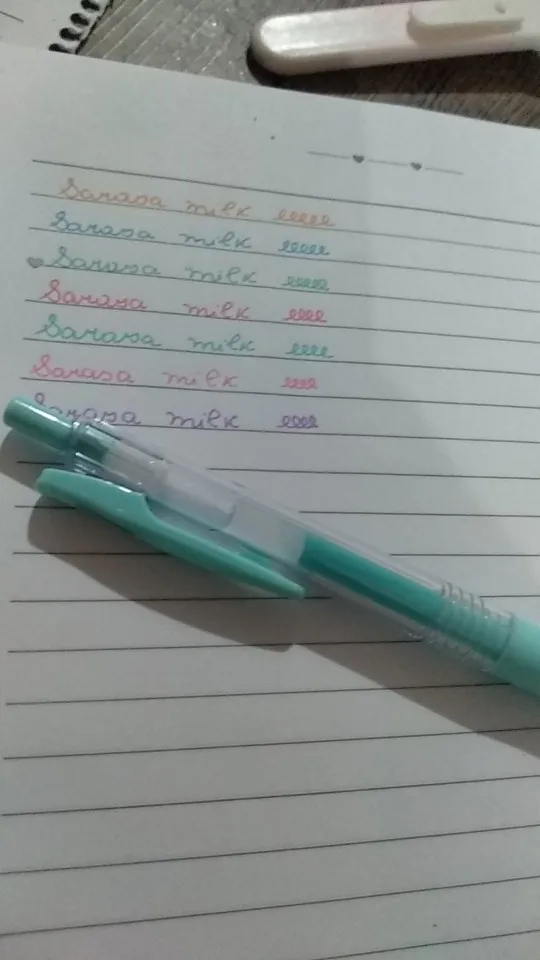 Sarasa milk eeeee
Sarasa milk eeee
Sarasa milk eeeee
Sarasa milk eeee
Sarasa milk eeee
Sarasa milk eee
Sarasa milk eeee